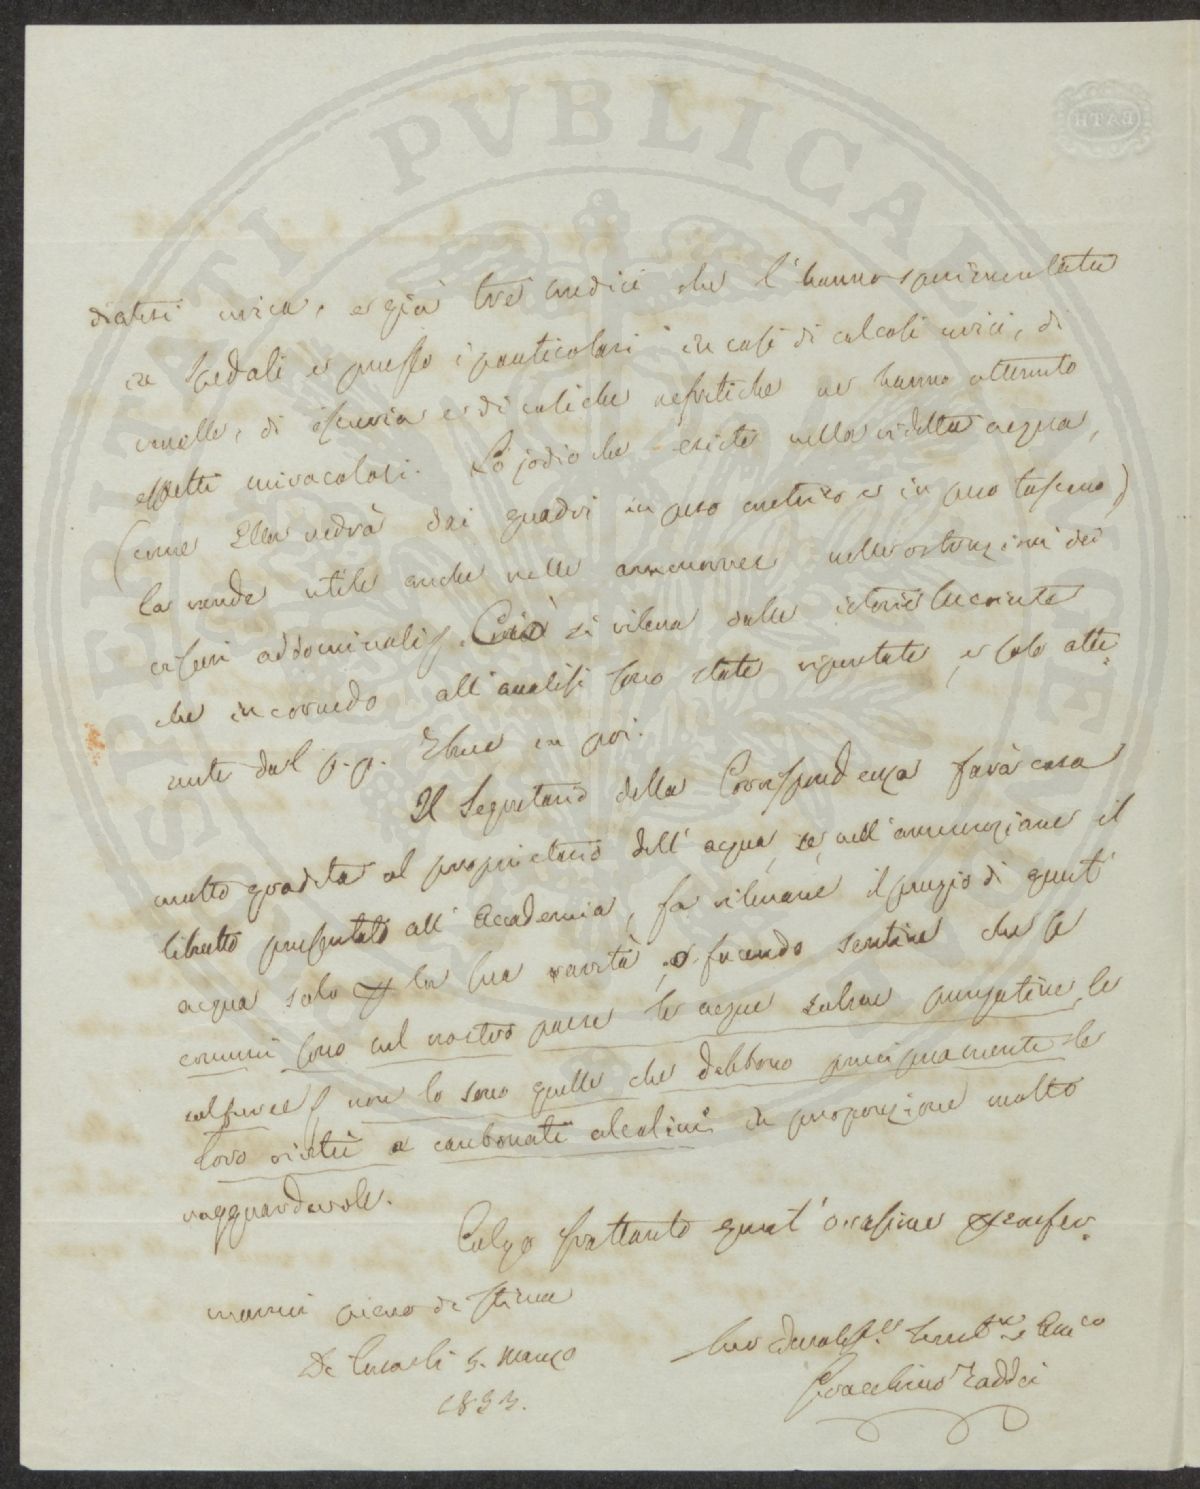 diatesi urica, e già tre medici che l'hanno sperimentata
in Spedali e presso i particolari in casi di calcoli urici, di
renelle, di iscuria e di coliche nefritiche ne hanno ottenuto
effetti miracolosi. Lo jodio che esiste nella ridetta acqua,
(come Ella vedrà dai quadri in peso metrico e in peso toscano)
la rende utile anche nelle amenorree nelle ostruzioni dei
visceri addominali. Ciò si rileva dalle istorie
che in corredo all'analisi sono state riportate, e solo otte-
nute dal p.p. in poi.
Il Segretario della Corrispondenza farà cosa
molto gradita al proprietario dell'acqua, se, nell'annunziare il
libretto presentato all'Accademia, fa rilevare il pregio di quest'
acqua solo per la sua rarità, facendo sentire che se
comuni sono nel nostro paese le acque saline purgative, le
sulfuree, non lo sono quelle che debbono precipuamente la
loro virtù a carbonati alcalini in proporzione molto
ragguardevole.
Colgo frattanto quest'occasione per confer-
marmi pieno di stima
Di Casa li 5. Marzo
1833.
Suo Devotiss. Servit.re e Amico
Gioacchino Taddei
PVBLICAE
BATH